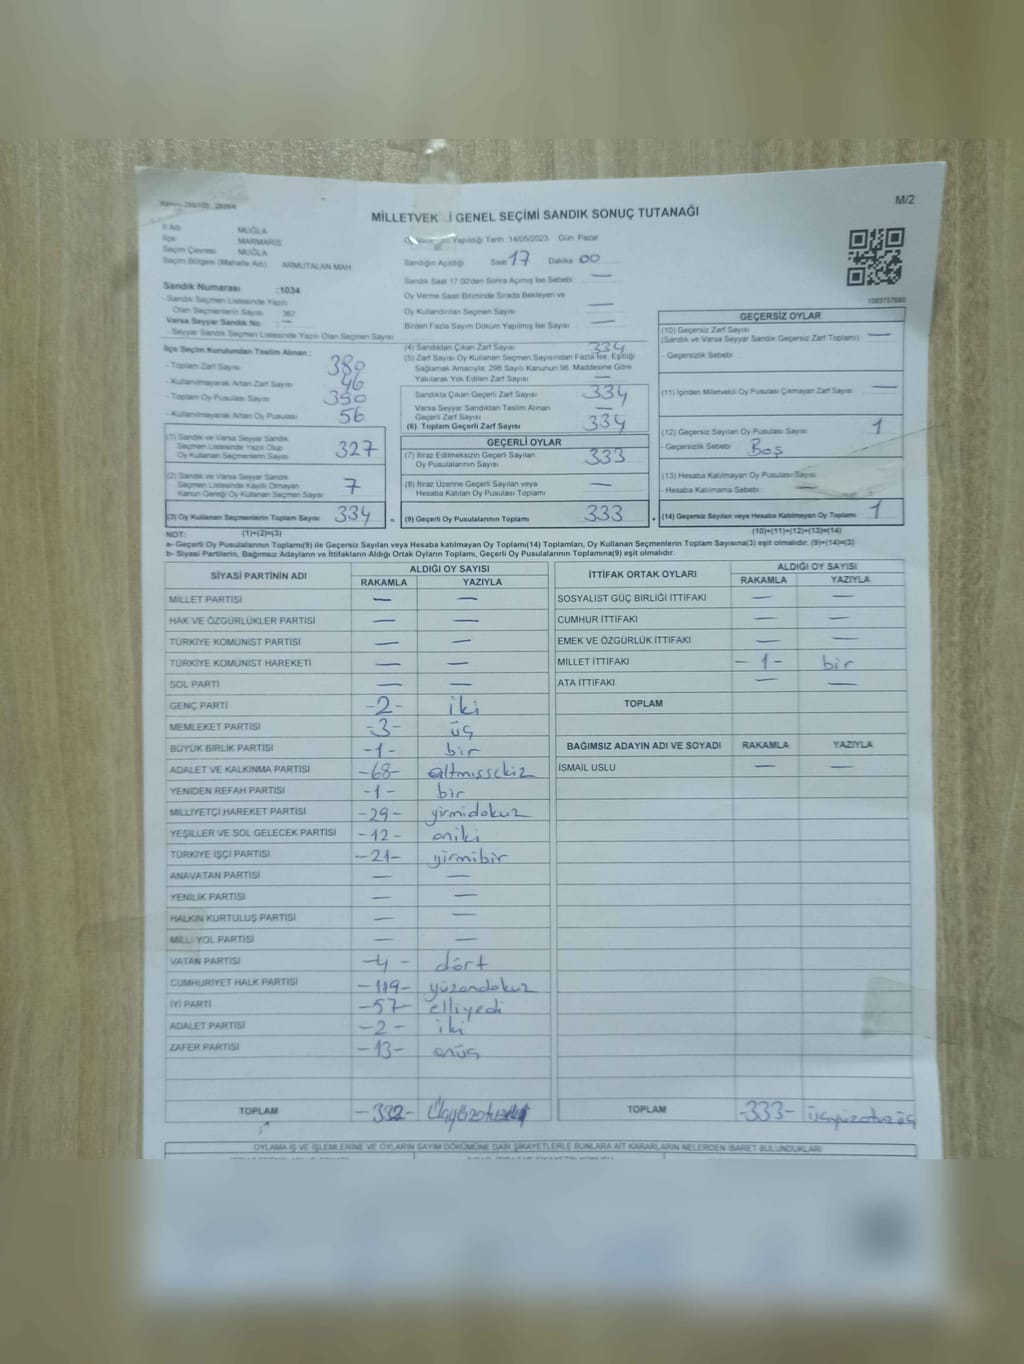 M/2
MİLLETVEK İ GENEL SEÇİMİ SANDIK SONUÇ TUTANAĞI
İl Adı MUĞLA
İlçe MARMARİS
Seçim Çevresi MUĞLA
Seçim Bölgesi (Mahalle Adı) ARMUTALAN MAH.
Sandık Numarası :1034
- Sandık Seçmen Listesinde Yazılı
Olan Seçmenlerin Sayısı 367
Varsa Seyyar Sandık No : —
- Seyyar Sandık Seçmen Listesinde Yazılı Olan Seçmen Sayısı
İlçe Seçim Kurulundan Teslim Alınan :
- Toplam Zarf Sayısı 380
- Kullanılmayarak Artan Zarf Sayısı 46
- Toplam Oy Pusulası Sayısı 390
- Kullanılmayarak Artan Oy Pusulası 56
(1) Sandık ve Varsa Seyyar Sandık
Seçmen Listesinde Yazılı Olup
Oy Kullanan Seçmenlerin Sayısı 327
(2) Sandık ve Varsa Seyyar Sandık
Seçmen Listesinde Kayıtlı Olmayan
Kanun Gereği Oy Kullanan Seçmen Sayısı 7
(3) Oy Kullanan Seçmenlerin Toplam Sayısı 334 =
Yapıldığı Tarih :14/05/2023 Gün Pazar
Sandığın Açıldığı Saat 17 Dakika 00
Sandık Saat 17:00'den Sonra Açılmış İse Sebebi —
Oy Verme Saati Bitiminde Sırada Bekleyen ve
Oy Kullandırılan Seçmen Sayısı —
Birden Fazla Sayım Döküm Yapılmış İse Sayısı —
(4) Sandıktan Çıkan Zarf Sayısı 334
(5) Zarf Sayısı Oy Kullanan Seçmen Sayısından Fazla İse, Eşitliği
Sağlamak Amacıyla, 298 Sayılı Kanunun 98. Maddesine Göre
Yakılarak Yok Edilen Zarf Sayısı —
Sandıkta Çıkan Geçerli Zarf Sayısı 334
Varsa Seyyar Sandıktan Teslim Alınan
Geçerli Zarf Sayısı —
(6) Toplam Geçerli Zarf Sayısı 334
GEÇERLİ OYLAR
(7) İtiraz Edilmeksizin Geçerli Sayılan
Oy Pusulalarının Sayısı 333
(8) İtiraz Üzerine Geçerli Sayılan veya
Hesaba Katılan Oy Pusulası Toplamı —
(9) Geçerli Oy Pusulalarının Toplamı 333 +
GEÇERSİZ OYLAR
(10) Geçersiz Zarf Sayısı
(Sandık ve Varsa Seyyar Sandık Geçersiz Zarf Toplamı) —
- Geçersizlik Sebebi
(11) İçinden Milletvekili Oy Pusulası Çıkmayan Zarf Sayısı —
(12) Geçersiz Sayılan Oy Pusulası Sayısı 1
- Geçersizlik Sebebi Boş
(13) Hesaba Katılmayan Oy Pusulası Sayısı
- Hesaba Katılmama Sebebi : —
(14) Geçersiz Sayılan veya Hesaba Katılmayan Oy Toplamı 1
NOT: (1)+(2)=(3) (10)+(11)+(12)+(13)=(14)
a- Geçerli Oy Pusulalarının Toplamı(9) ile Geçersiz Sayılan veya Hesaba katılmayan Oy Toplamı(14) Toplamları, Oy Kullanan Seçmenlerin Toplam Sayısına(3) eşit olmalıdır. (9)+(14)=(3)
b- Siyasi Partilerin, Bağımsız Adayların ve İttifakların Aldığı Ortak Oyların Toplamı, Geçerli Oy Pusulalarının Toplamına(9) eşit olmalıdır.
SİYASİ PARTİNİN ADI ALDIĞI OY SAYISI
RAKAMLA YAZIYLA
MİLLET PARTİSİ — —
HAK VE ÖZGÜRLÜKLER PARTİSİ — —
TÜRKİYE KOMÜNİST PARTİSİ — —
TÜRKİYE KOMÜNİST HAREKETİ — —
SOL PARTİ — —
GENÇ PARTİ -2- iki
MEMLEKET PARTİSİ -3- üç
BÜYÜK BİRLİK PARTİSİ -1- bir
ADALET VE KALKINMA PARTİSİ -68- altmışsekiz
YENİDEN REFAH PARTİSİ -1- bir
MİLLİYETÇİ HAREKET PARTİSİ -29- yirmidokuz
YEŞİLLER VE SOL GELECEK PARTİSİ -12- oniki
TÜRKİYE İŞÇİ PARTİSİ -21- yirmibir
ANAVATAN PARTİSİ — —
YENİLİK PARTİSİ — —
HALKIN KURTULUŞ PARTİSİ — —
MİLLİ YOL PARTİSİ — —
VATAN PARTİSİ -4- dört
CUMHURİYET HALK PARTİSİ -119- yüzondokuz
İYİ PARTİ -57- elliyedi
ADALET PARTİSİ -2- iki
ZAFER PARTİSİ -13- onüç
TOPLAM -332-
İTTİFAK ORTAK OYLARI ALDIĞI OY SAYISI
RAKAMLA YAZIYLA
SOSYALİST GÜÇ BİRLİĞİ İTTİFAKI — —
CUMHUR İTTİFAKI — —
EMEK VE ÖZGÜRLÜK İTTİFAKI — —
MİLLET İTTİFAKI -1- bir
ATA İTTİFAKI — —
TOPLAM
BAĞIMSIZ ADAYIN ADI VE SOYADI RAKAMLA YAZIYLA
İSMAİL USLU — —
TOPLAM -333- üçyüzotuzüç
OYLAMA İŞ VE İŞLEMLERİNE VE OYLARIN SAYIM DÖKÜMÜNE DAİR ŞİKAYETLERLE BUNLARA AİT KARARLARIN NELERDEN İBARET BULUNDUKLARI